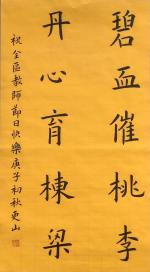 碧血催桃李
丹心育棟梁
祝全區教師節日快樂庚子初秋更山